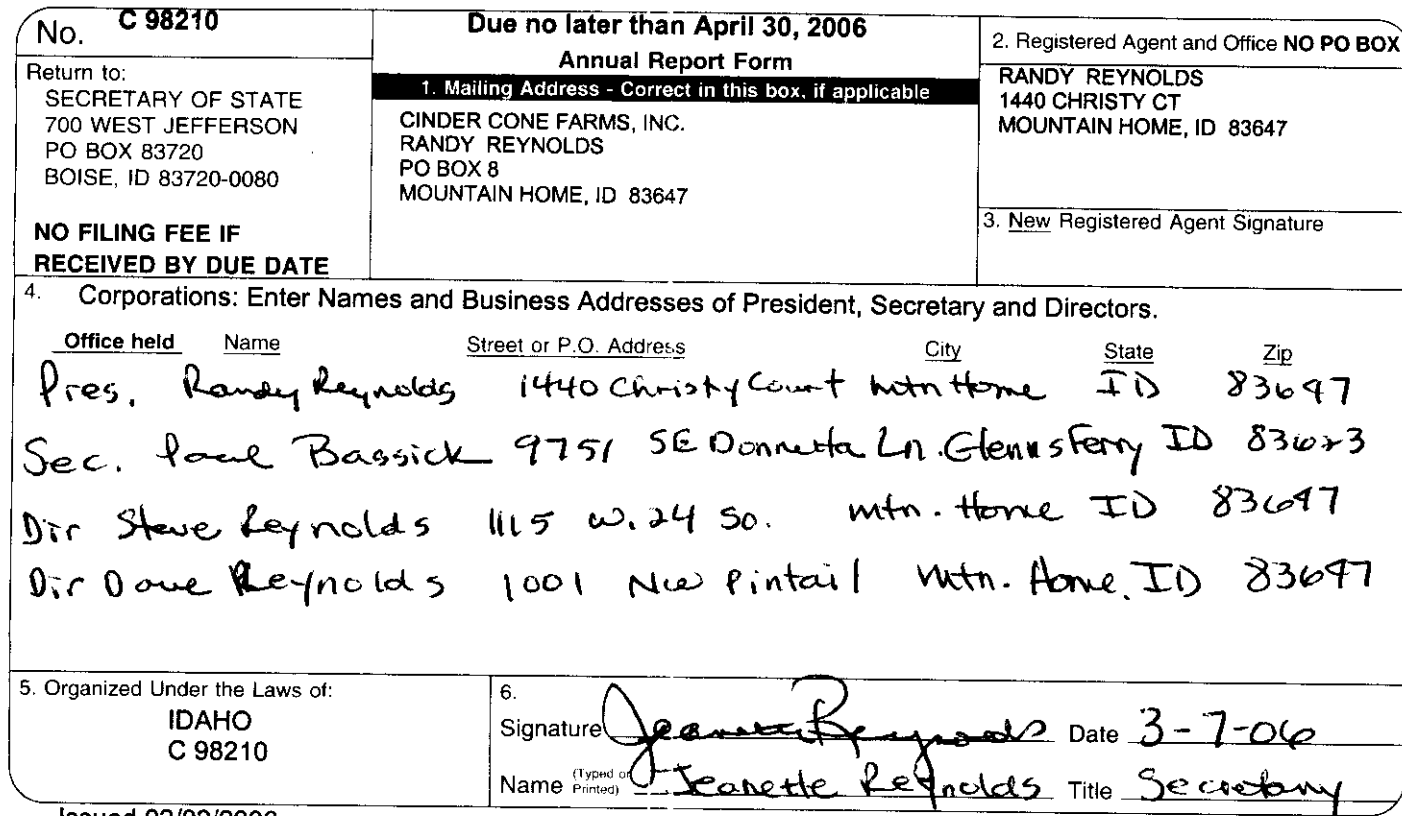 No. C 98210
Return to:
SECRETARY OF STATE
700 WEST JEFFERSON
PO BOX 83720
BOISE, ID 83720-0080
NO FILING FEE IF
RECEIVED BY DUE DATE
Due no later than April 30, 2006
Annual Report Form
1. Mailing Address - Correct in this box, if applicable
CINDER CONE FARMS, INC.
RANDY REYNOLDS
PO BOX 8
MOUNTAIN HOME, ID 83647
2. Registered Agent and Office NO PO BOX
RANDY REYNOLDS
1440 CHRISTY CT
MOUNTAIN HOME, ID 83647
3. New Registered Agent Signature
4. Corporations: Enter Names and Business Addresses of President, Secretary and Directors.
Office held Name Street or P.O. Address City State Zip
Pres. Randy Reynolds 1440 Christy Court Mtn Home ID 83647
Sec. Bassick 9751 SE Donnetta Ln. Glenns Ferry ID 83623
Dir Steve Reynolds 1115 W. 24 So. mtn. Home ID 83647
Dir Dave Reynolds 1001 NW Pintail Mtn. Home, ID 83647
5. Organized Under the Laws of:
IDAHO
C 98210
6.
Signature Jeanette Reynolds Date 3-7-06
Name (Typed or Printed) Jeanette Reynolds Title Secretary